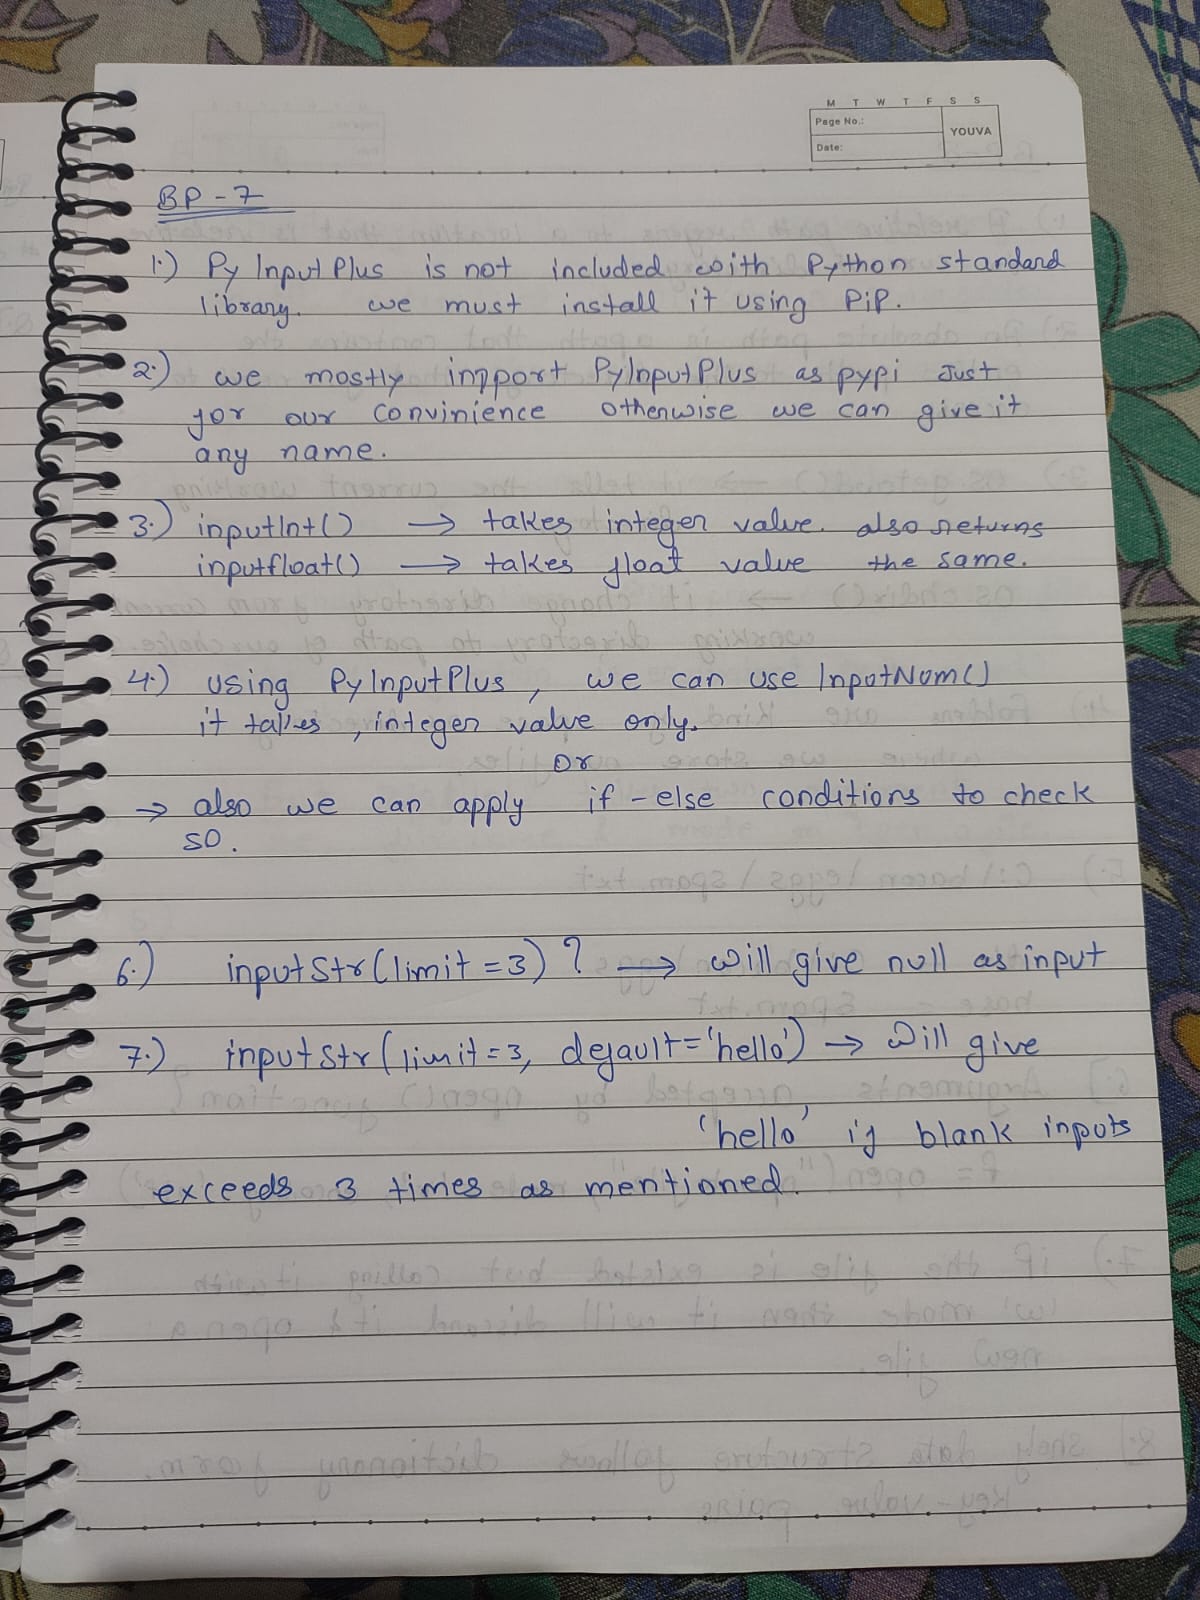 M T W T F S S
Page No.:
YOUVA
Date:
BP - 7
1.) PyInputPlus is not included with Python standard
library. we must install it using PiP.
2.) we mostly import PyInputPlus as pypi Just
for our convinience otherwise we can give it
any name.
3.) inputInt() → takes integer value. also returns
inputfloat() → takes float value the same.
4.) using PyInputPlus, we can use InputNum()
it takes, integer value only.
Or
→ also we can apply if-else conditions to check
so.
6.) inputStr(limit=3)? → will give null as input
7.) inputStr(limit=3, default='hello') → will give
'hello' if blank inputs
exceeds 3 times as mentioned.